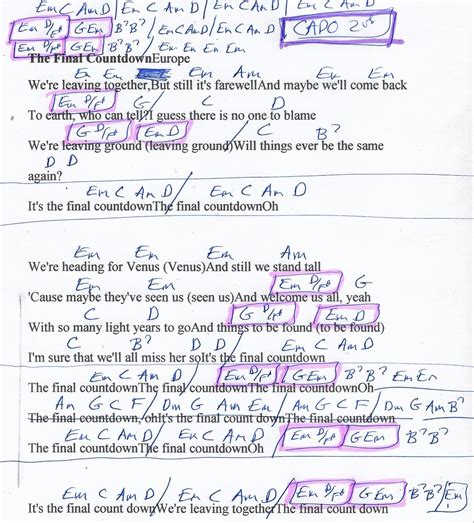 Em C Am D / Em C Am D / Em C Am D / Em C Am D
Em D/F# G Em B7 B7 / Em C Am D / Em C Am D / CAPO 2nd
Em D/F# G Em B7 B7 / Em Em Em Em
The Final CountdownEurope
Em Em Em Am Em Em
We're leaving together,But still it's farewellAnd maybe we'll come back
Em D/F# G C D
To earth, who can tell?I guess there is no one to blame
G D/F# Em D C B7
We're leaving ground (leaving ground)Will things ever be the same
D D
again?
Em C Am D / Em C Am D
It's the final countdownThe final countdownOh
Em Em Em Am
We're heading for Venus (Venus)And still we stand tall
Em Em Em D/F# G
'Cause maybe they've seen us (seen us)And welcome us all, yeah
C D G D/F# Em D
With so many light years to goAnd things to be found (to be found)
C B7 D D / Em C Am D
I'm sure that we'll all miss her soIt's the final countdown
Em C Am D / Em D/F# G Em B7 B7 Em Em
The final countdownThe final countdownThe final countdownOh
Am G C F / Dm G Am Em / Am G C F / Dm G Am B7
The final countdown, ohIt's the final count downThe final countdown
Em C Am D / Em C Am D / Em D/F# G Em B7 B7
The final countdownThe final countdownOh
Em C Am D / Em C Am D / Em D/F# G Em B7 B7 / Em
It's the final count downWe're leaving togetherThe final count down